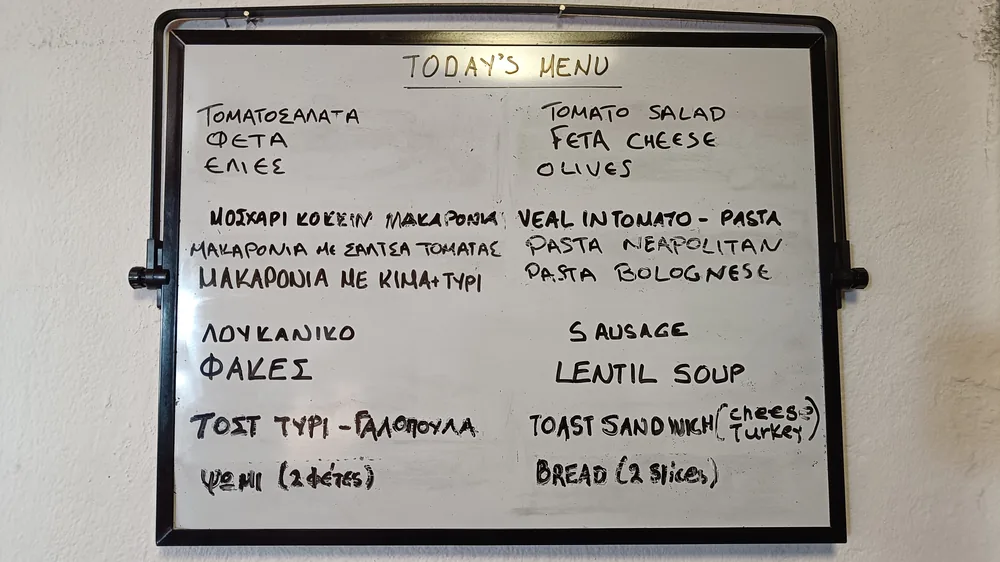 TODAY'S MENU
ΤΟΜΑΤΟΣΑΛΑΤΑ TOMATO SALAD
ΦΕΤΑ FETA CHEESE
ΕΛΙΕΣ OLIVES
ΜΟΣΧΑΡΙ ΚΟΚΚΙΝ ΜΑΚΑΡΟΝΙΑ VEAL IN TOMATO - PASTA
ΜΑΚΑΡΟΝΙΑ ΜΕ ΣΑΛΤΣΑ ΤΟΜΑΤΑΣ PASTA NEAPOLITAN
ΜΑΚΑΡΟΝΙΑ ΜΕ ΚΙΜΑ + ΤΥΡΙ PASTA BOLOGNESE
ΛΟΥΚΑΝΙΚΟ SAUSAGE
ΦΑΚΕΣ LENTIL SOUP
ΤΟΣΤ ΤΥΡΙ - ΓΑΛΟΠΟΥΛΑ TOAST SANDWICH (cheese Turkey)
ΨΩΜΙ (2 φέτες) BREAD (2 slices)